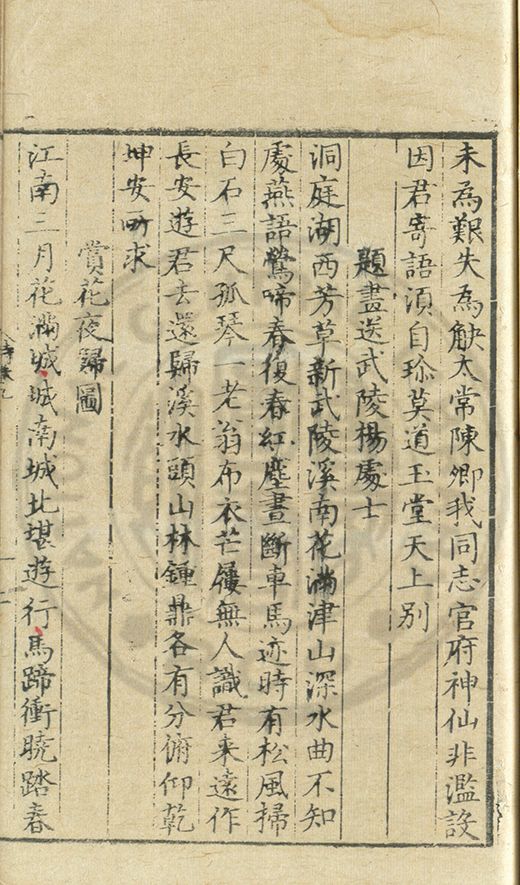 未為艱失為觖太常陳卿我同志官府神仙非濫設
因君寄語湏自珎莫道玉堂天上别
題畫送武陵楊處士
洞庭湖西芳草新武陵溪南花滿津山深水曲不知
處燕語鶯啼春復春紅塵晝斷車馬迹時有松風掃
白石三尺孤琴一老翁布衣芒屨無人識君来遠作
長安遊君去還歸溪水頭山林鍾鼎各有分俯仰乾
坤安所求
賞花夜歸圖
江南三月花滿城城南城北堪遊行馬蹄衝曉踏春